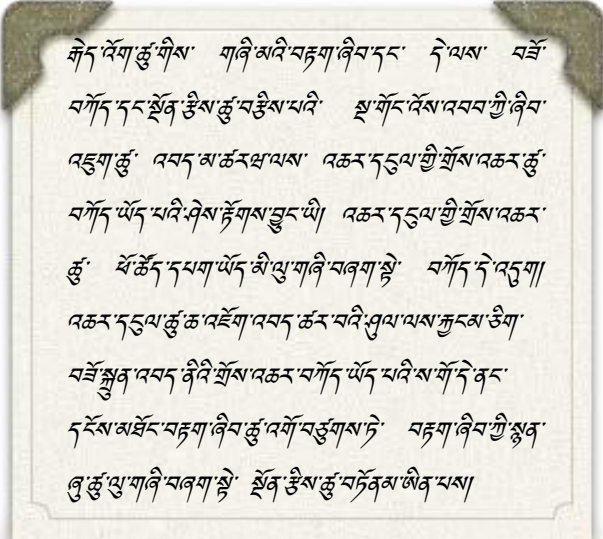 རྒེད་འོག་ཚུ་གིས་ གཞི་མའི་བརྟག་ཞིབ་དང་ དེ་ལས་ བཟོ་
བཀོད་དང་སྔོན་རྩིས་ཚུ་བརྩིས་པའི་ སྔ་གོང་འོས་འབབ་ཀྱི་ཞིབ་
འཇུག་ཚུ་ འབད་མ་ཚརཝ་ལས་ འཆར་དངུལ་གྱི་གྲོས་འཆར་ཚུ་
བཀོད་ཡོད་པའི་ཤེས་རྟོགས་བྱུང་ཡི། འཆར་དངུལ་གྱི་གྲོས་འཆར་
ཚུ་ ཕོ་ཚོད་དཔག་ཡོད་མི་ལུ་གཞི་བཞག་སྟེ་ བཀོད་དེ་འདུག།
འཆར་དངུལ་ཚུ་ཆ་འཇོག་འབད་ཚར་བའི་ཤུལ་ལས་རྐྱངམ་ཅིག་
བཟོ་སྐྲུན་འབད་ནིའི་གྲོས་འཆར་བཀོད་ཡོད་པའི་ས་གོ་དེ་ནང་
དངོས་མཐོང་བརྟག་ཞིབ་ཚུ་འགོ་བཙུགས་ཏེ་ བརྟག་ཞིབ་ཀྱི་སྙན་
ཞུ་ཚུ་ལུ་གཞི་བཞག་སྟེ་ སྔོན་རྩིས་ཚུ་བཏོནམ་ཨིན་པས།